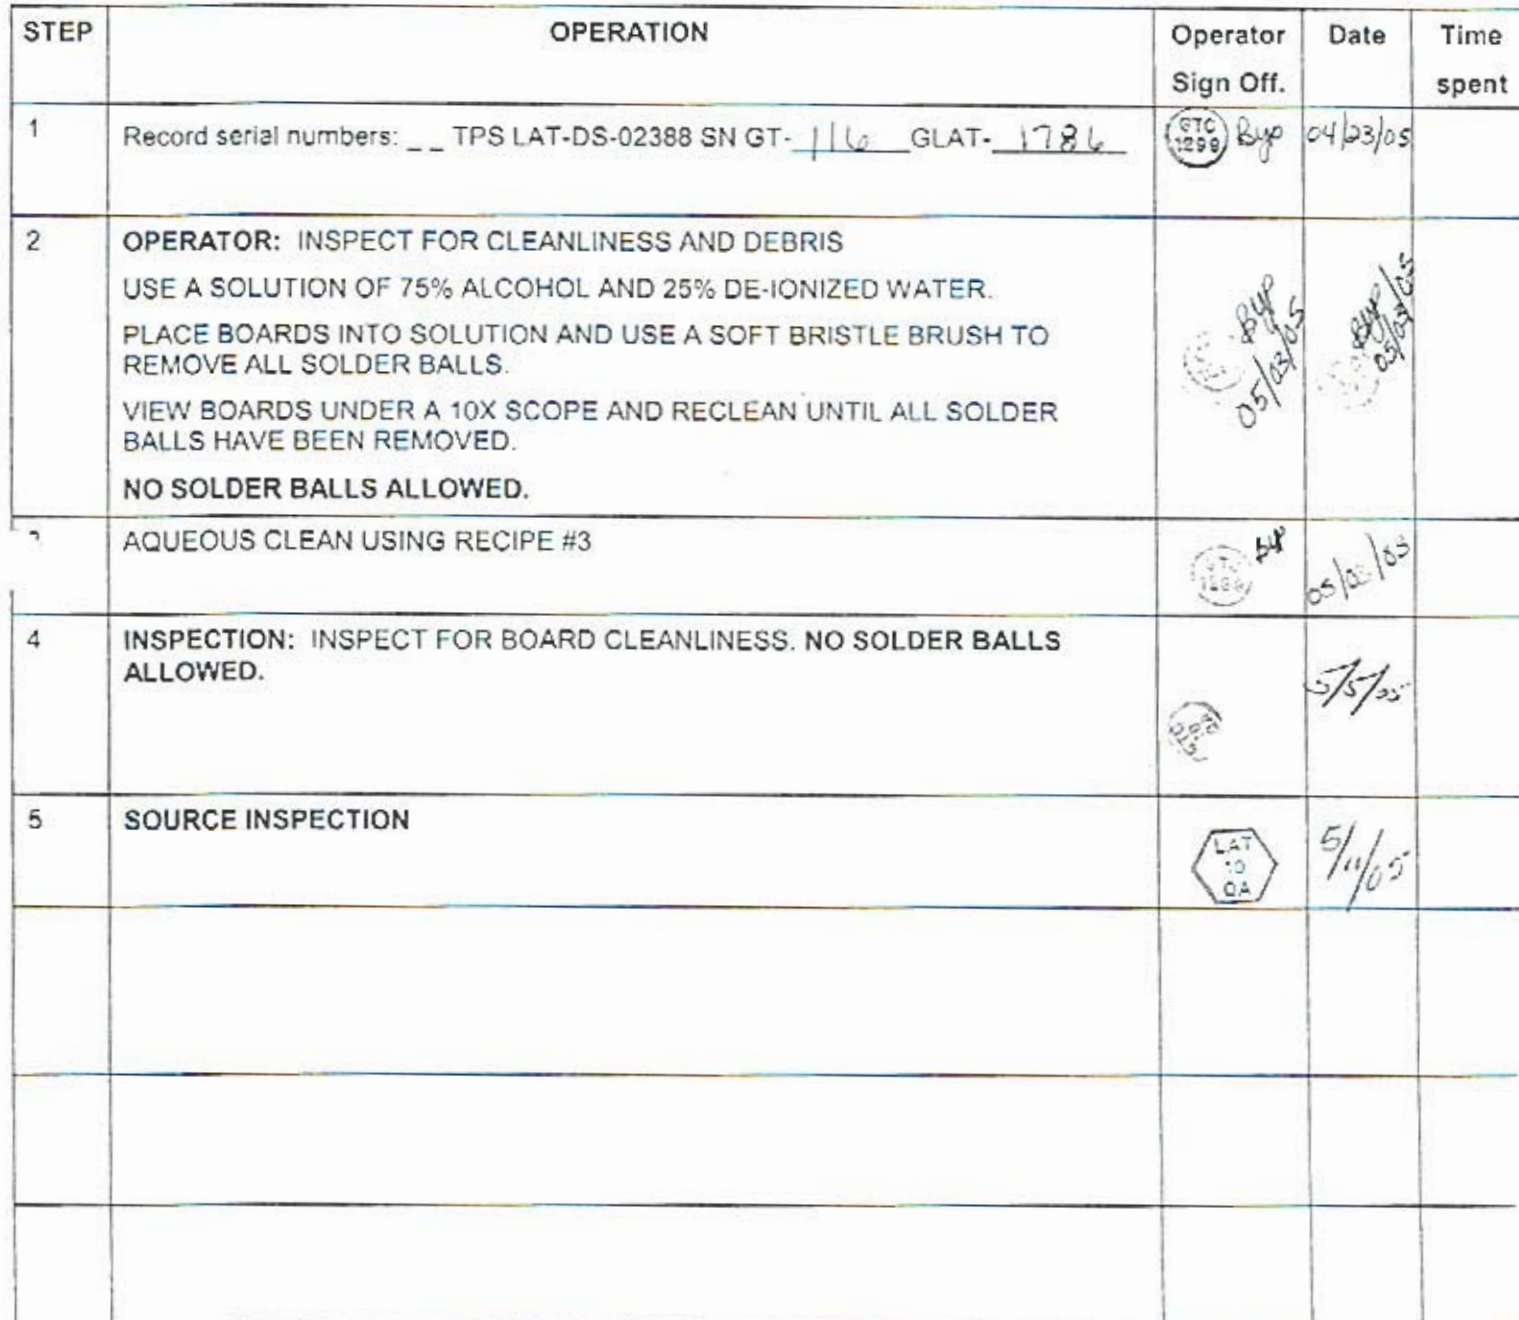 STEP OPERATION Operator Sign Off. Date Time spent
1 Record serial numbers: _ _ TPS LAT-DS-02388 SN GT-116 GLAT-1786 GTC 1299 Byp 04/23/05
2 OPERATOR: INSPECT FOR CLEANLINESS AND DEBRIS
USE A SOLUTION OF 75% ALCOHOL AND 25% DE-IONIZED WATER.
PLACE BOARDS INTO SOLUTION AND USE A SOFT BRISTLE BRUSH TO
REMOVE ALL SOLDER BALLS.
VIEW BOARDS UNDER A 10X SCOPE AND RECLEAN UNTIL ALL SOLDER
BALLS HAVE BEEN REMOVED.
NO SOLDER BALLS ALLOWED.
Byp 05/03/05
Byp 05/03/05
AQUEOUS CLEAN USING RECIPE #3 GTC Byp
4 INSPECTION: INSPECT FOR BOARD CLEANLINESS. NO SOLDER BALLS
ALLOWED.
5/5/05
5 SOURCE INSPECTION LAT 10 QA 5/11/05